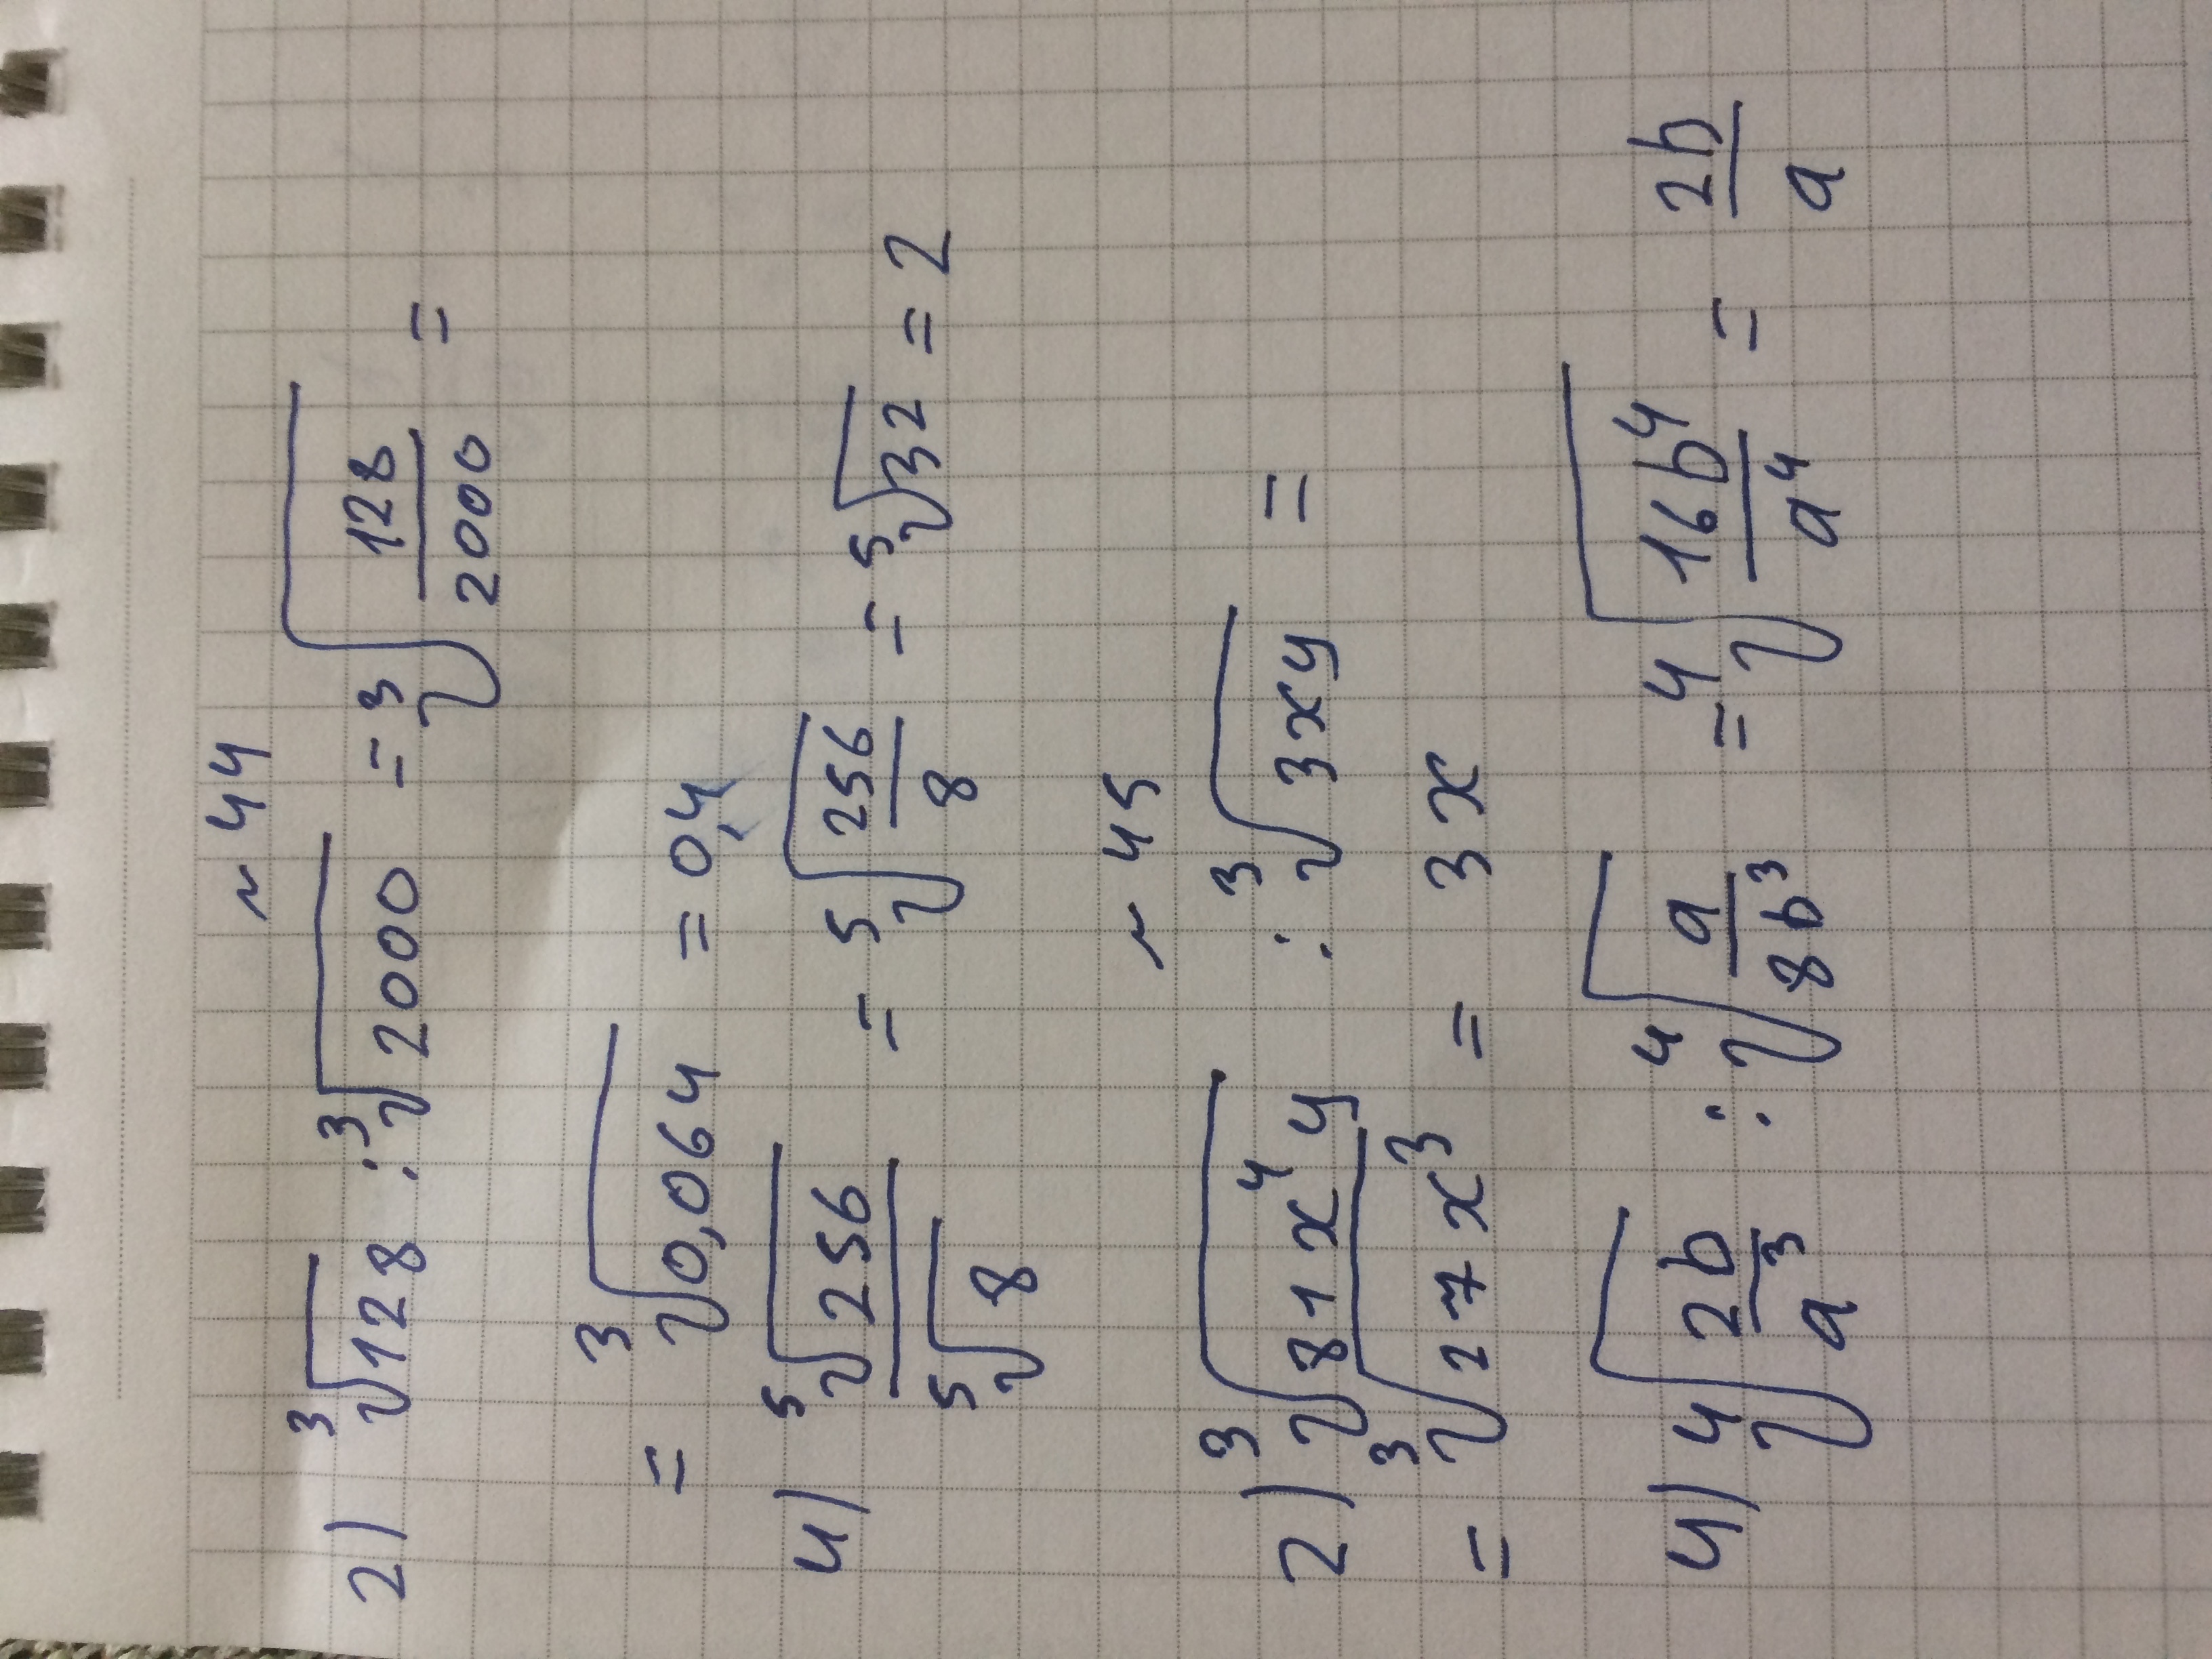 ~ 44
2) ∛128 : ∛2000 = ∛(128/2000) =
= ∛0,064 = 0,4
4) ⁵√256 / ⁵√8 = ⁵√(256/8) = ⁵√32 = 2
~ 45
2) ∛(81x⁴y) : ∛(3xy) =
= ∛(27x³) = 3x
4) ⁴√(2b/a³) : ⁴√(a/8b³) = ⁴√(16b⁴/a⁴) = 2b/a